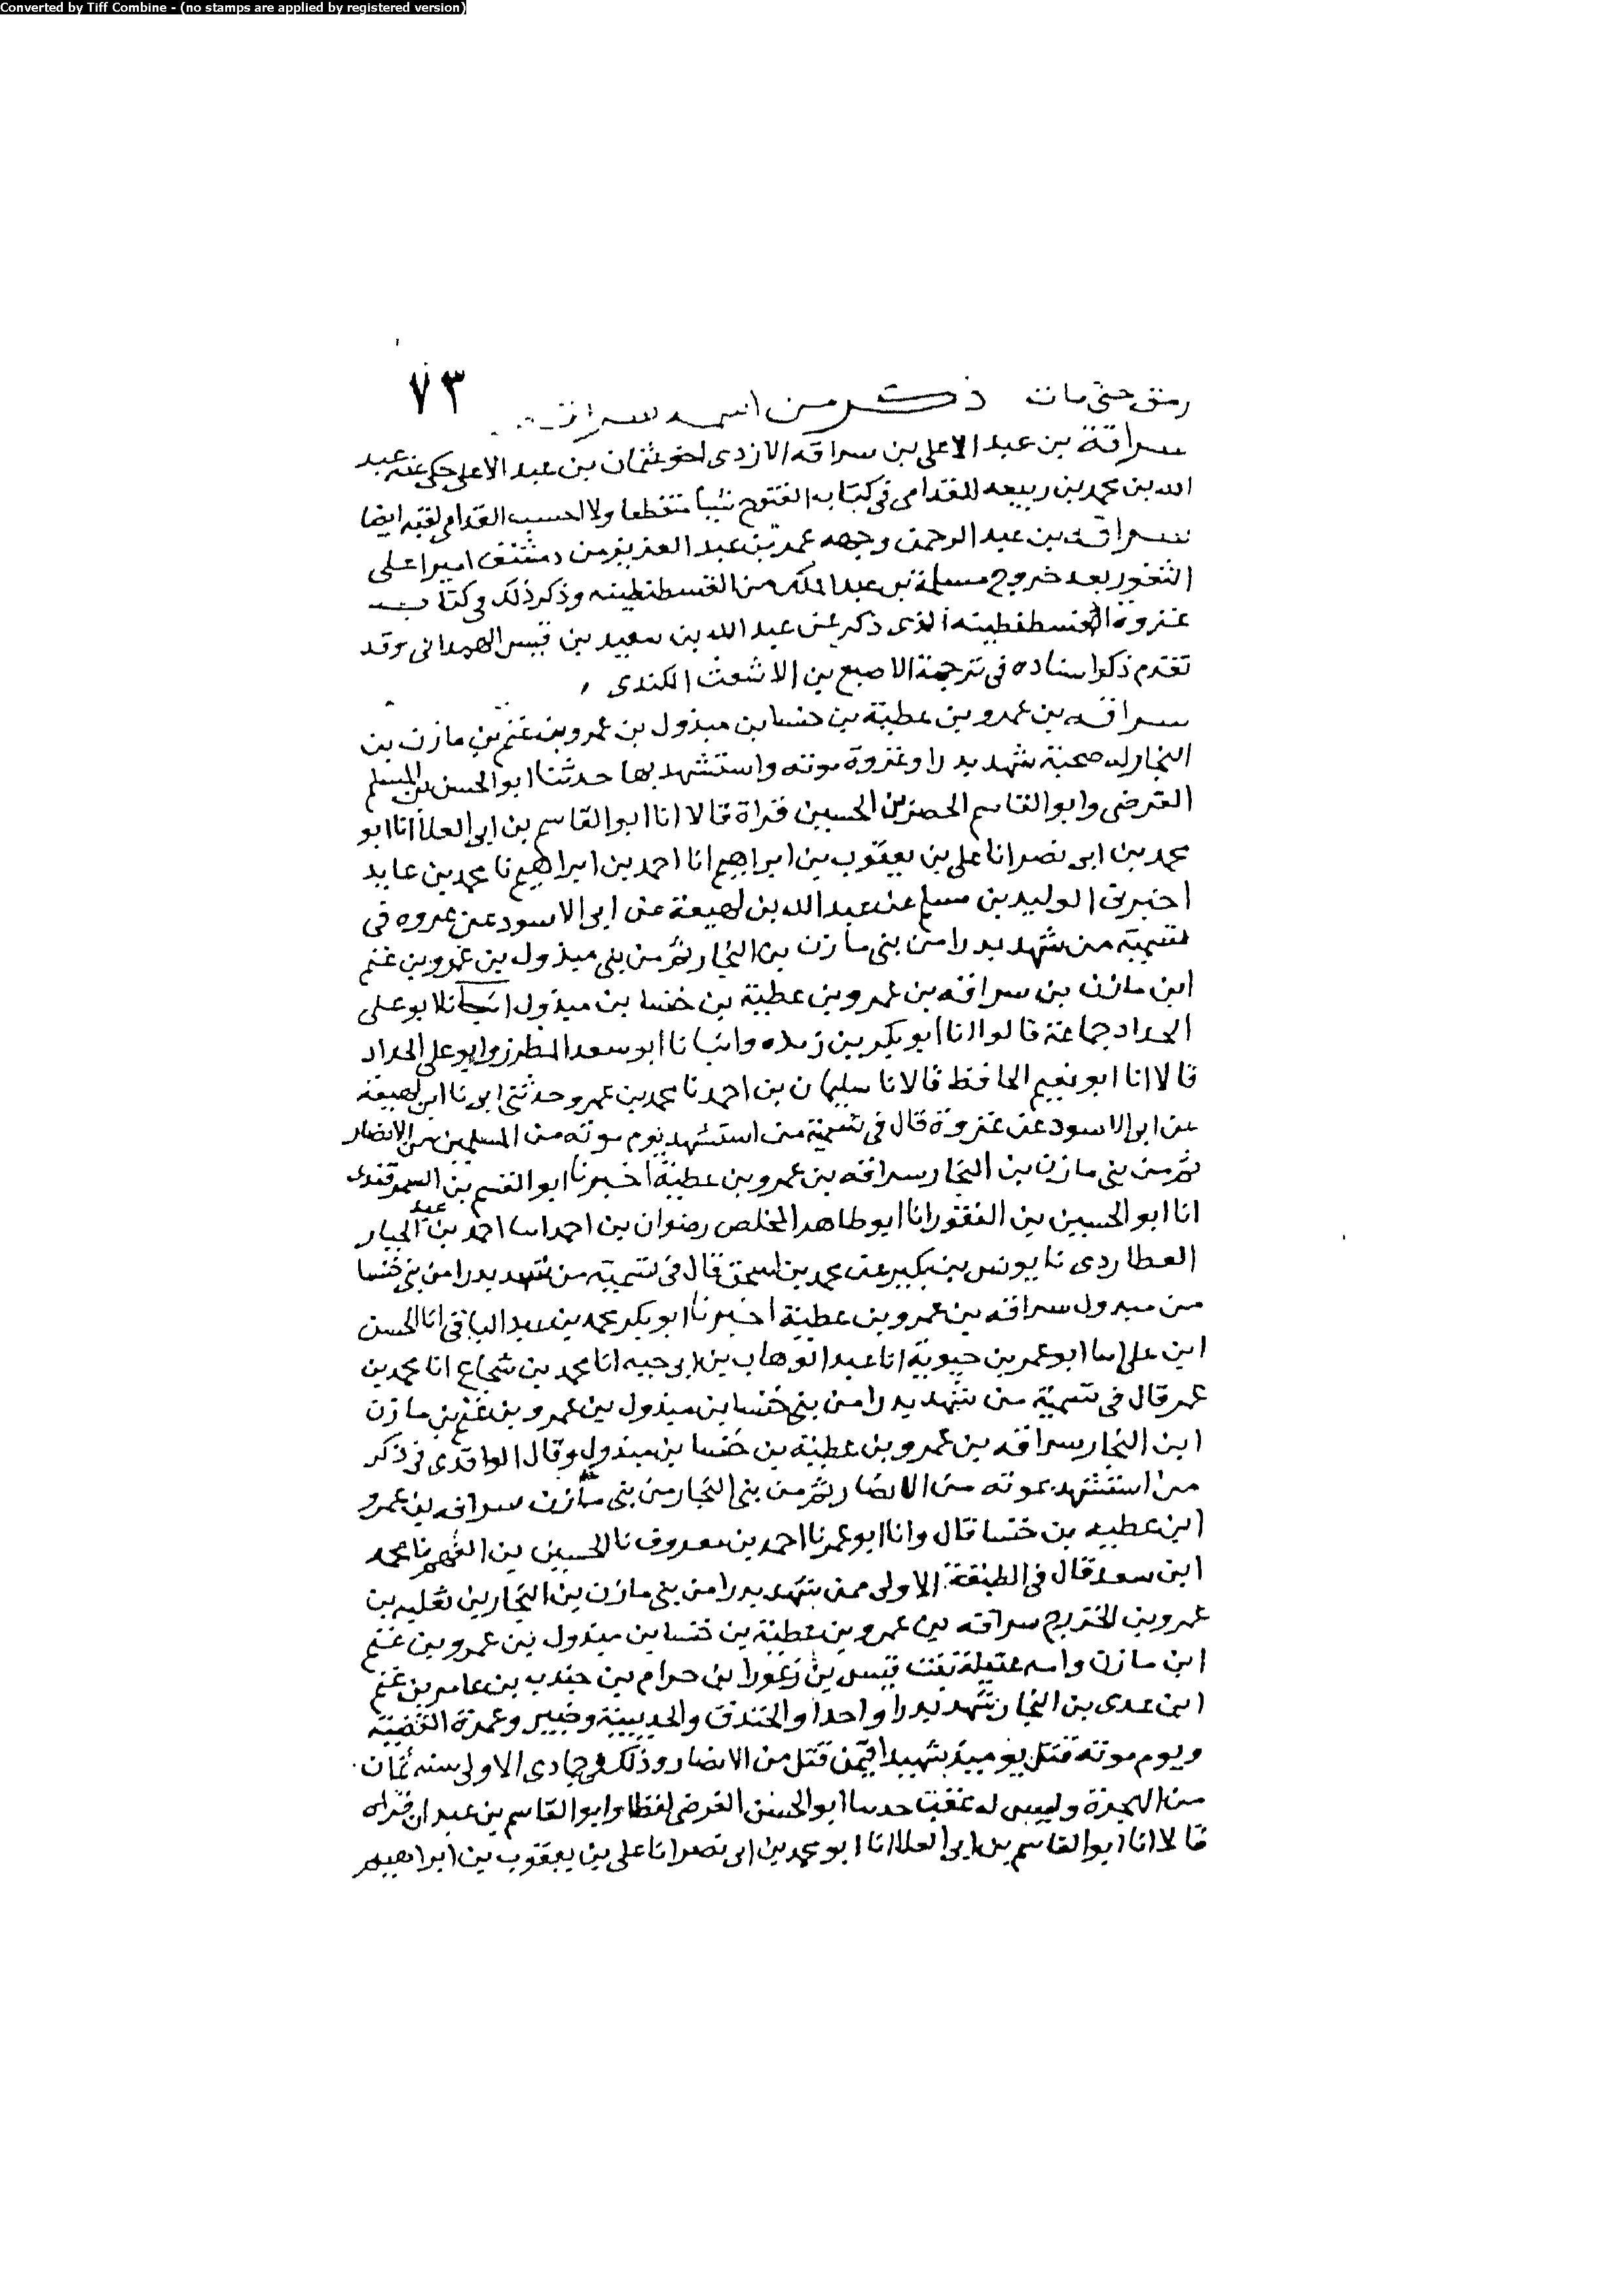 Converted by Tiff Combine - (no stamps are applied by registered version)
٧٣
رمق حتى مات ذكر من اسمه سراقة
سراقة بن عبد الاعلى بن سراقه الازدى اخو عثمان بن عبد الاعلى حكى عنه عبد
الله بن محمد بن ربيعه القدامى فى كتابه الفتوح شيا منقطعا ولا احسب القدامى لقيه ايضا
سراقه بن عبد الرحمن وجهه عمر بن عبد العزيز من دمشق اميرا على
الثغور بعد خروج مسلمة بن عبد الملك من القسطنطينه وذكر ذلك فى كتاب
غزوة القسطنطينه الذى ذكر عن عبد الله بن سعيد بن قيس الهمدانى وقد
تقدم ذكر اسناده فى ترجمة الاصبع بن الاشعث الكندى
سراقه بن عمرو بن عطية بن خنسا بن مبذول بن عمرو بن غنم بن مازن بن
النجار له صحبة شهد بدرا وغزوة موته واستشهد بها حدثنا ابو الحسن بن المسلم
الفرضى وابو القاسم الحضر بن الحسين قراة قالا انا ابو القاسم بن ابى العلا انا ابو
محمد بن ابى نصر انا على بن يعقوب بن ابراهيم انا احمد بن ابراهيم نا محمد بن عايد
اخبرنى الوليد بن مسلم عن عبد الله بن لهيعة عن ابى الاسود عن عروه فى
تسمية من شهد بدرا من بنى مازن بن النجار ثم من بنى مبذول بن عمرو بن غنم
ابن مازن بن سراقه بن عمرو بن عطية بن خنسا بن مبذول انبانا ابو على
الحداد جماعة قالوا انا ابو بكر بن زيده وانبانا ابو سعد المطرز وابو على الحداد
قالا انا ابو نعيم الحافظ قالا نا سليمان بن احمد نا محمد بن عمرو حدثنى ابى نا ابن لهيعة
عن ابى الاسود عن عزوة قال فى تسمية من استشهد يوم موته من المسلمين من الانصار
ثم من بنى مازن بن النجار سراقه بن عمرو بن عطية اخبرنا ابو القسم بن السمرقندى
انا ابو الحسين بن النقور انا ابو طاهر المخلص رضوان بن احمد انا احمد بن عبد الجبار
العطاردى نا يونس بن بكير عن محمد بن اسحق قال فى تسمية من شهد بدرا من بنى خنسا
من مبدول سراقه بن عمرو بن عطية اخبرنا ابو بكر محمد بن عبد الباقى انا الحسن
ابن على انا ابو عمر بن حيوية انا عبد الوهاب بن ابى حيه انا محمد بن شجاع انا محمد بن
عمر قال فى تسمية من شهد بدرا من بنى خنسا بن مبذول بن عمرو بن غنم بن مازن
ابن النجار سراقه بن عمرو بن عطيه بن خنسا بن مبذول وقال الواقدى فى ذكر
من استشهد بموته من الانصار ثم من بنى النجار من بنى مازن سراقه بن عمرو
ابن عطيه بن خنسا قال وانا ابو عمر نا احمد بن معروف نا الحسين بن الفهم نا محمد
ابن سعد قال فى الطبقة الاولى ممن شهد بدرا من بنى مازن بن النجار بن ثعلبه بن
عمرو بن الخزرج سراقه بن عمرو بن عطية بن خنسا بن مبذول بن عمرو بن غنم
ابن مازن وامه عتيلة بنت قيس بن زعورا بن حرام بن جندب بن عامر بن غنم
ابن عدى بن النجار شهد بدرا واحدا والخندق والحديبية وخيبر وعمرة القضية
ويوم موته قتل يوميذ شهيدا فيمن قتل من الانصار وذلك فى جمادى الاولى سنه ثمان
من الهجرة وليس له عقب حدثنا ابو الحسن الفرضى لفظا وابو القاسم بن عبدان قراه
قالا انا ابو القاسم بن ابى العلا انا ابو محمد بن ابى نصر انا على بن يعقوب بن ابراهيم